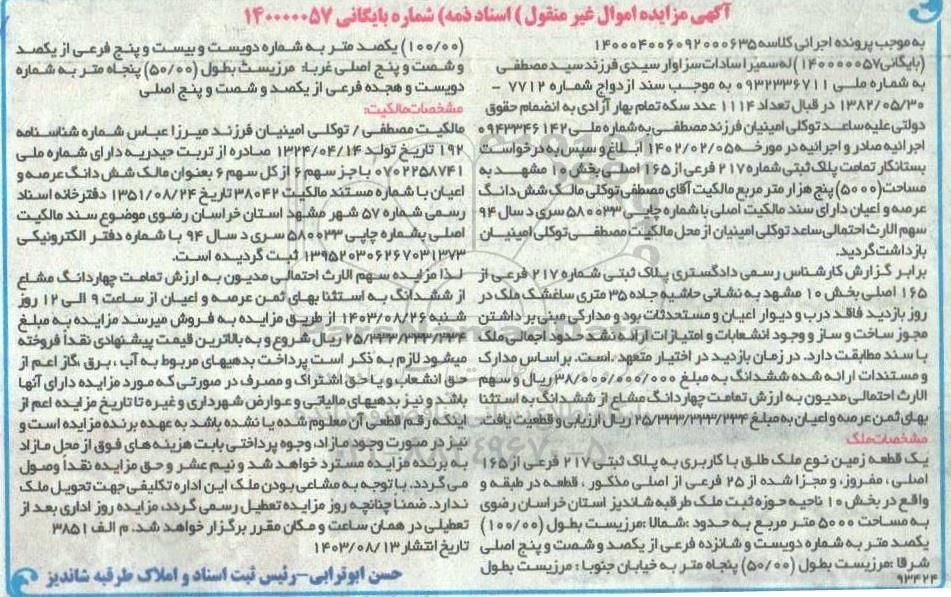 آگهی مزایده اموال غیر منقول) اسناد ذمه) شماره بایگانی ۱۴۰۰۰۰۰۵۷
به موجب پرونده اجرائی کلاسه ۱۴۰۰۰۴۰۰۶۰۹۲۰۰۰۶۳۵
(بایگانی ۱۴۰۰۰۰۰۵۷) له سمیرا سادات سزاوار سیدی فرزند سید مصطفی
به شماره ملی ۰۹۳۲۳۳۶۷۱۱ به موجب سند ازدواج شماره ۷۷۱۲ -
۱۳۸۲/۰۵/۳۰ در قبال تعداد ۱۱۱۴ عدد سکه تمام بهار آزادی به انضمام حقوق
دولتی علیه ساعد توکلی امینیان فرزند مصطفی به شماره ملی ۰۹۴۳۳۴۶۱۴۲
اجرائیه صادر و اجرائیه در مورخه ۱۴۰۲/۰۲/۰۵ ابلاغ و سپس به درخواست
بستانکار تمامت پلاک ثبتی شماره ۲۱۷ فرعی از ۱۶۵ اصلی بخش ۱۰ مشهد به
مساحت (۵۰۰۰) پنج هزار متر مربع مالکیت آقای مصطفی توکلی مالک شش دانگ
عرصه و اعیان دارای سند مالکیت اصلی با شماره چاپی ۵۸۰۰۳۳ سری د سال ۹۴
سهم الارث احتمالی ساعد توکلی امینیان از محل مالکیت مصطفی توکلی امینیان
بازداشت گردید.
برابر گزارش کارشناس رسمی دادگستری پلاک ثبتی شماره ۲۱۷ فرعی از
۱۶۵ اصلی بخش ۱۰ مشهد به نشانی حاشیه جاده ۳۵ متری ساغشک ملک در
روز بازدید فاقد درب و دیوار اعیان و مستحدثات بود و مدارکی مبنی بر داشتن
مجوز ساخت و ساز و وجود انشعابات و امتیازات ارائه نشد حدود اجمالی ملک
با سند مطابقت دارد. در زمان بازدید در اختیار متعهد است. بر اساس مدارک
و مستندات ارائه شده ششدانگ به مبلغ ۳۸/۰۰۰/۰۰۰/۰۰۰ ریال و سهم
الارث احتمالی مدیون به ارزش تمامت چهاردانگ مشاع از ششدانگ به استثنا
بهای ثمن عرصه و اعیان به مبلغ ۲۵/۳۳۳/۳۳۳/۳۳۴ ریال ارزیابی و قطعیت یافت.
مشخصات ملک
یک قطعه زمین نوع ملک طلق با کاربری به پلاک ثبتی ۲۱۷ فرعی از ۱۶۵
اصلی ، مفروز، و مجزا شده از ۲۵ فرعی از اصلی مذکور ، قطعه در طبقه و
واقع در بخش ۱۰ ناحیه حوزه ثبت ملک طرقبه شاندیز استان خراسان رضوی
به مساحت ۵۰۰۰ متر مربع به حدود :شمالا :مرزیست بطول (۱۰۰/۰۰)
یکصد متر به شماره دویست و شانزده فرعی از یکصد و شصت و پنج اصلی
شرقا :مرزیست بطول (۵۰/۰۰) پنجاه متر به خیابان جنوبا : مرزیست بطول
۹۳۴۲۴
(۱۰۰/۰۰) یکصد متر به شماره دویست و بیست و پنج فرعی از یکصد
و شصت و پنج اصلی غربا: مرزیست بطول (۵۰/۰۰) پنجاه متر به شماره
دویست و هجده فرعی از یکصد و شصت و پنج اصلی
مشخصات مالکیت:
مالکیت مصطفی / توکلی امینیان فرزند میرزا عباس شماره شناسنامه
۱۹۲ تاریخ تولد ۱۳۲۴/۰۴/۱۴ صادره از تربت حیدریه دارای شماره ملی
۰۷۰۲۲۵۸۷۴۱ با جز سهم ۶ از کل سهم ۶ بعنوان مالک شش دانگ عرصه و
اعیان با شماره مستند مالکیت ۳۸۰۴۲ تاریخ ۱۳۵۱/۰۸/۲۴ دفترخانه اسناد
رسمی شماره ۵۷ شهر مشهد استان خراسان رضوی موضوع سند مالکیت
اصلی بشماره چاپی ۵۸۰۰۳۳ سری د سال ۹۴ با شماره دفتر الکترونیکی
۱۳۹۵۲۰۳۰۶۲۶۷۰۳۱۳۷۳ ثبت گردیده است.
لذا مزایده سهم الارث احتمالی مدیون به ارزش تمامت چهاردانگ مشاع
از ششدانگ به استثنا بهای ثمن عرصه و اعیان از ساعت ۹ الی ۱۲ روز
شنبه ۱۴۰۳/۰۸/۲۶ از طریق مزایده به فروش میرسد مزایده به مبلغ
۲۵/۳۳۳/۳۳۳/۳۳۴ ریال شروع و به بالاترین قیمت پیشنهادی نقداً فروخته
میشود لازم به ذکر است پرداخت بدهیهای مربوط به آب ، برق ،گاز اعم از
حق انشعاب و یا حق اشتراک و مصرف در صورتی که مورد مزایده دارای آنها
باشد و نیز بدهیهای مالیاتی و عوارض شهرداری و غیره تا تاریخ مزایده اعم از
اینکه رقم قطعی آن معلوم شده یا نشده باشد به عهده برنده مزایده است و
نیز در صورت وجود مازاد، وجوه پرداختی بابت هزینه های فوق از محل مازاد
به برنده مزایده مسترد خواهد شد و نیم عشر و حق مزایده نقداً وصول
می گردد. با توجه به مشاعی بودن ملک این اداره تکلیفی جهت تحویل ملک
ندارد. ضمنا چنانچه روز مزایده تعطیل رسمی گردد، مزایده روز اداری بعد از
تعطیلی در همان ساعت و مکان مقرر برگزار خواهد شد. م الف ۳۸۵۱
تاریخ انتشار ۱۴۰۳/۰۸/۱۳
حسن ابوترابی-رئیس ثبت اسناد و املاک طرقبه شاندیز